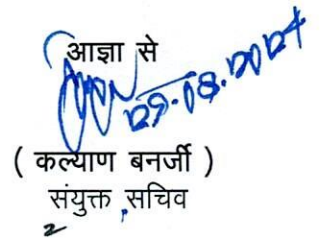 आज्ञा से
29.08.2024
( कल्याण बनर्जी )
संयुक्त सचिव